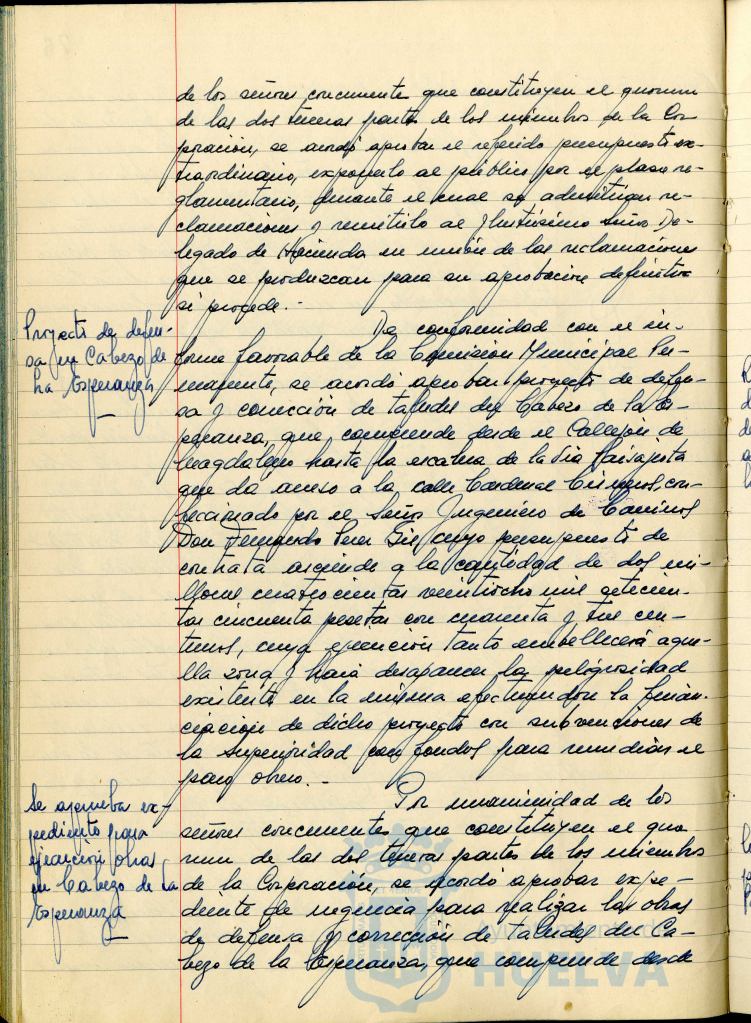 de los señores concurrente que constituyen el quorum
de las dos terceras partes de los miembros de la Cor-
poración, se acordó aprobar el referido presupuesto ex-
traordinario, exponerlo al público por el plazo re-
glamentario, durante el cual se admitirán re-
clamaciones y remitirlo al Ilustrísimo Señor De-
legado de Hacienda en unión de las reclamaciones
que se produzcan para su aprobación definitiva
si procede.-
Proyecto de defen-
sa en Cabezo de
la Esperanza
De conformidad con el in-
forme favorable de la Comisión Municipal Per-
manente, se acordó aprobar proyecto de defen-
sa y corrección de taludes del Cabezo de la Es-
peranza, que comprende desde el Callejón de
Magdalena hasta la escalera de la Vía Paisajista
que da acceso a la calle Cardenal Cisneros, con-
feccionado por el Señor Ingeniero de Caminos
Don Fernando Gil, cuyo presupuesto de
contrata asciende a la cantidad de dos mi-
llones cuatrocientas veintiocho mil setecien-
tas cincuenta pesetas con cuarenta y tres cen-
timos, cuya ejecución tanto embellecerá aque-
lla zona y hará desaparecer la peligrosidad
existente en la misma efectuandose la finan-
ciación de dicho proyecto con subvenciones de
la Superioridad con fondos para remediar el
paro obrero.-
Se aprueba ex-
pediente para
ejecución obras
en Cabezo de la
Esperanza
Por unanimidad de los
señores concurrentes que constituyen el quo-
rum de las dos terceras partes de los miembros
de la Corporación, se acordó aprobar expe-
diente de urgencia para realizar las obras
de defensa y corrección de taludes del Ca-
bezo de la Esperanza, que comprende desde
HUELVA